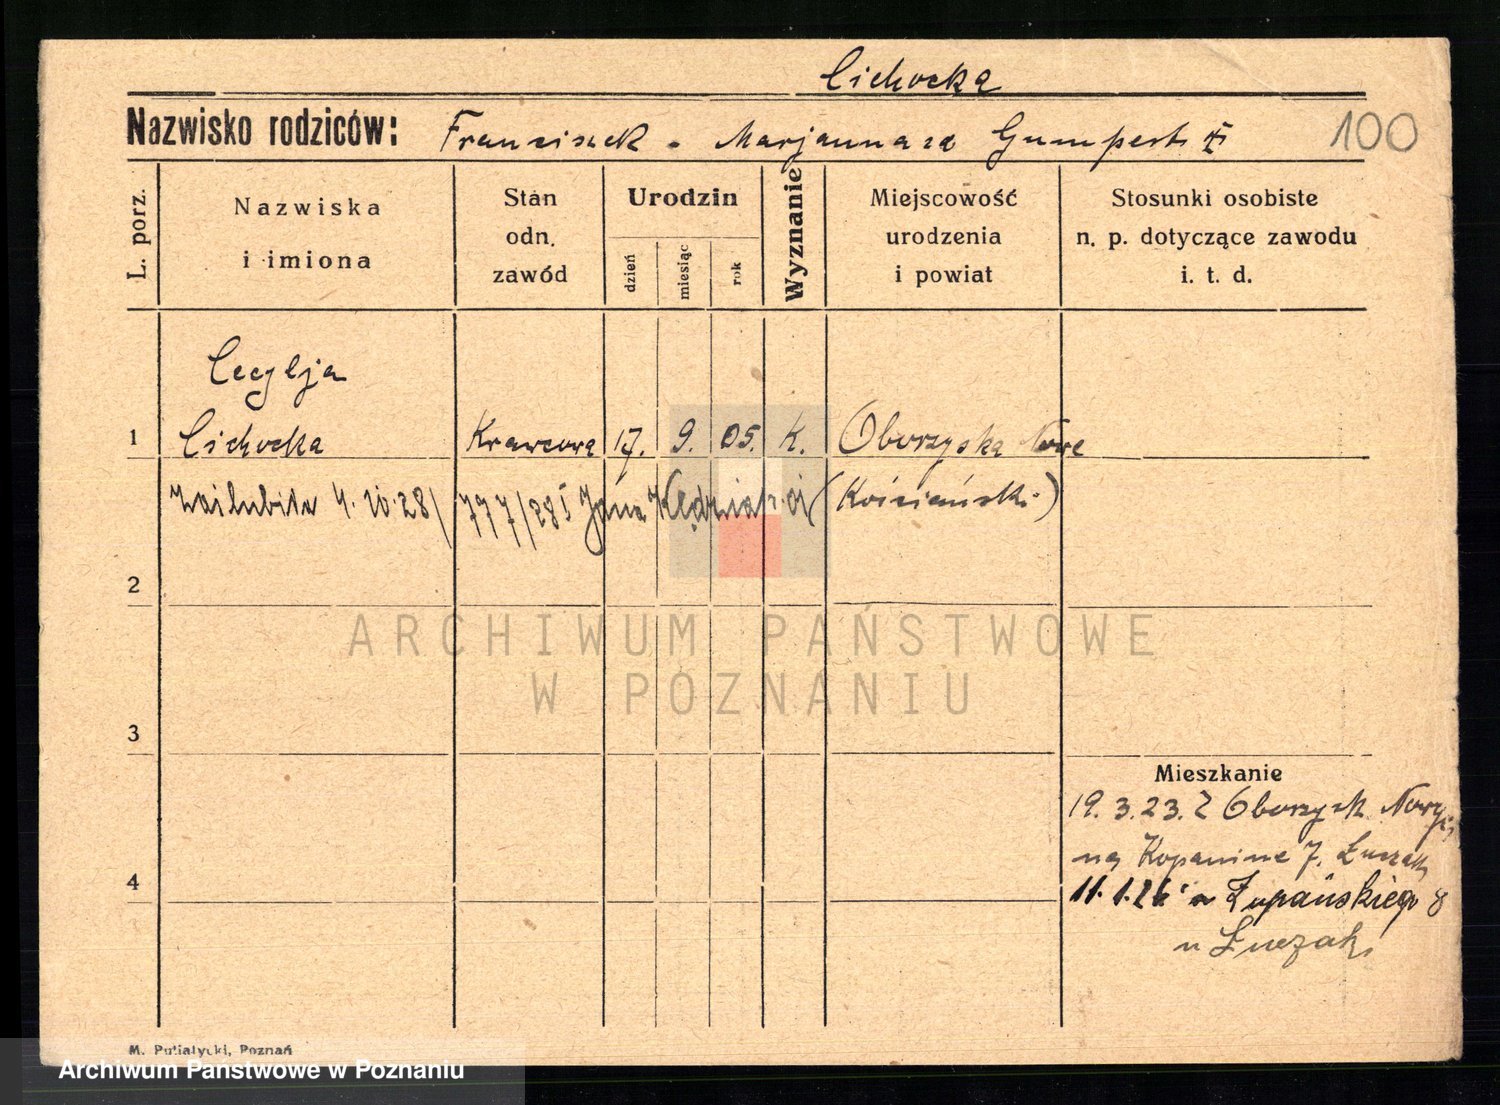 Cichocka
Nazwisko rodziców: Franciszek - Marjanna zd Gumpert
100
L. porz.
Nazwiska i imiona
Stan odn. zawód
Urodzin
dzień
miesiąc
rok
Wyznanie
Miejscowość urodzenia i powiat
Stosunki osobiste n. p. dotyczące zawodu i. t. d.
Cecylja
1 Cichocka Krawcowa 17. 9. 05. K. Oborzyska Nowe
4.10.28/ 777/28 Jana (Kościański)
2
3
Mieszkanie
19.3.23. Z Oborzysk Nowych
na Kopanine 7. Łuczak
4
11.1.26 Żupańskiego 8
u Łuczak
M. Putiatycki, Poznań
ARCHIWUM PAŃSTWOWE
W POZNANIU
Archiwum Państwowe w Poznaniu